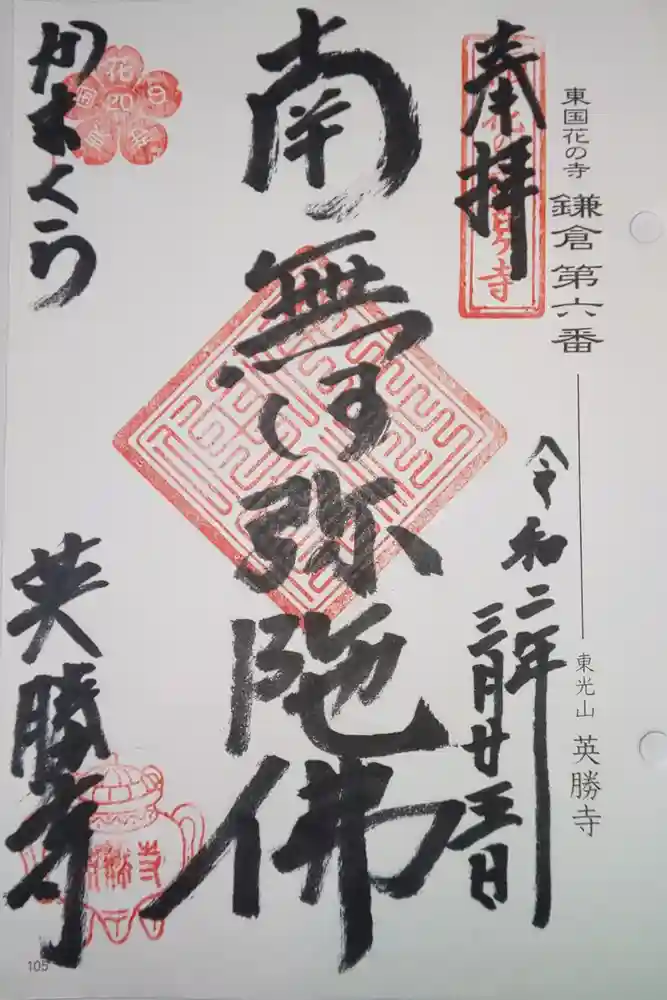 東国花の寺 鎌倉 第六番
東光山 英勝寺
奉拝
令和二年
三月廿五日
南無阿弥陀佛
かまくら
英勝寺
105